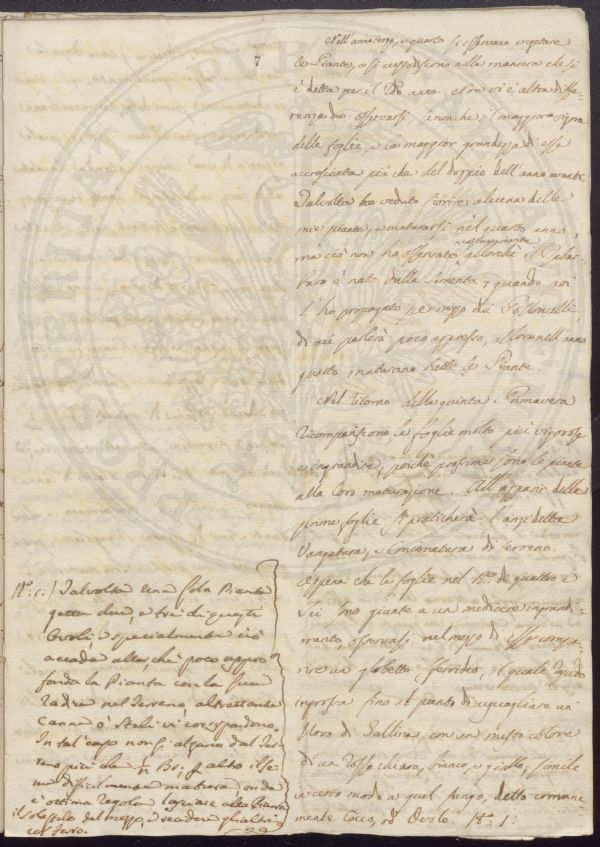 7
Nell'anno terzo, e quarto si osservano vegetare
le Piante, e si custodiscono nella maniera che si
è detta per il 2do anno. Non vi è altra diffe-
renza da osservarsi, senonche il maggior vigore
delle foglie, e la maggior grandezza di esse
accresciuta più che del doppio dell'anno avanti.
Talvolta ho veduto fiorire alcuna delle
mie piante, e maturarsi nel quarto anno,
ma ciò non ho osservato allorchè il Rabar-
baro è nato dalla semenza, quando poi
l'ho propagato per mezzo dei Polloncelli,
di cui parlerò poco appresso, allora nell'anno
quarto maturano belle le Piante.
Nel ritorno della quinta Primavera
ricompariscono le foglie molto più vigorose
e ingrandite, perchè prossime sono le piante
alla loro maturazione. All'apparir delle
prime foglie si praticherà l'anzidetta
Vangatura, e Concimatura di terreno.
Appena che le foglie nel N.o di quattro e
sei sono giunte a un mediocre ingrandi-
mento, osservasi nel mezzo di esse compa-
rire un globetto sferoideo, il quale rapido
ingrossa fino al punto di uguagliare un
Uovo di Gallina, con un misto colore
di un rosso chiaro, bianco, e giallo, simile
in certo modo a quel fungo, detto comune
mente Cocco, od Ovolo. N.o 1:
N.o 1.) Talvolta una sola Pianta
getta due, e tre di questi
Ovoli, e specialmente ciò
accade allor, chè poco appro
fonda la Pianta con la sua
radice nel terreno, altrettante
Canne o Steli vi corrispondono
In tal caso non si alzano dal Ter-
reno più che Br: alto il Se-
me difficilmente matura, onde
è ottima regola lasciare alla Pianta
il solo stelo del mezzo, e recidere gli altri
col ferro.
PROSPERITATI PUBLICAE